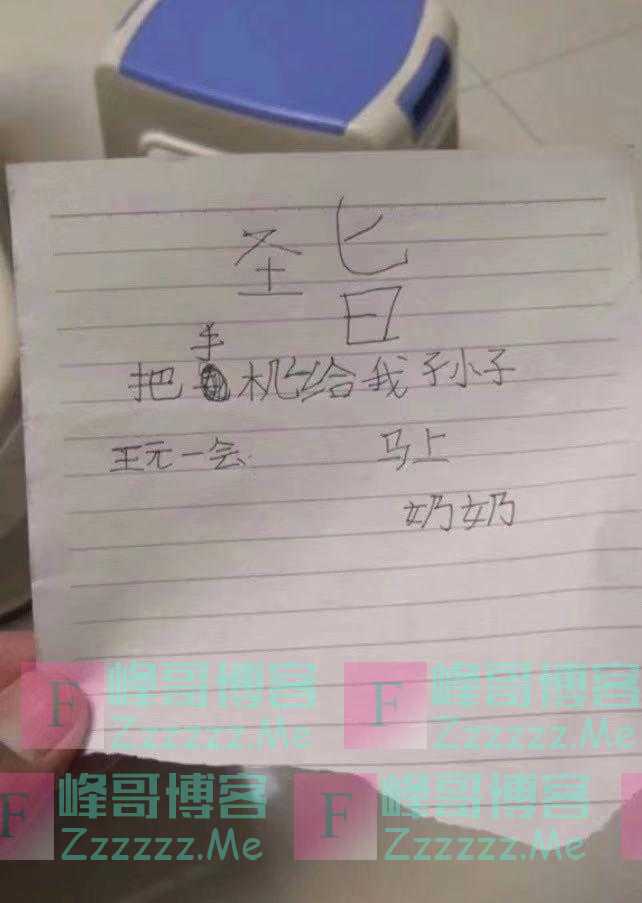 圣旨
把手机给我孙子
玩一会 马上
奶奶
F 峰哥博客 F 峰哥博客
Zzzzzz.Me Zzzzzz.Me
F 峰哥博客 F 峰哥博客 F
Zzzzzz.Me Zzzzzz.Me